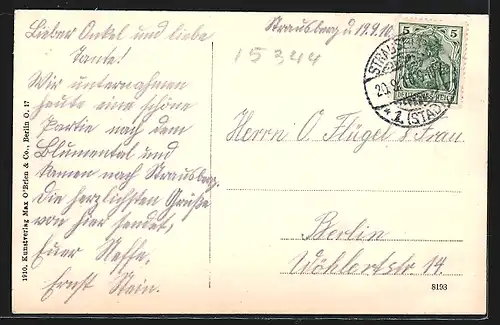 Strausberg d. 19.9.10.
15344
Lieber Onkel und liebe
Tante!
Wir unternahmen
heute eine schöne
Partie nach dem
Blumental und
kamen nach Strausberg.
Die herzlichsten Grüße
von hier sendet,
Euer Neffe,
Ernst Stein.
5 5
DEUTSCHES REICH
STRAUSB
20.9.
* 1 (STADT)
Herrn O. Flügel & Frau
Berlin
Wöhlertstr. 14.
8193
1910, Kunstverlag Max O'Brien & Co., Berlin O. 17